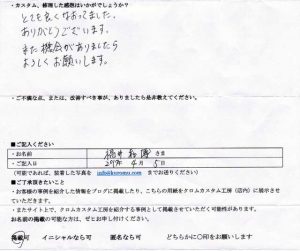 ・カスタム、修理した感想はいかがでしょうか？
とても良くなおってました。
ありがとうございます。
また機会がありましたら
よろしくお願いします。
・ご不満な点、または、改善すべき事が、ありましたら是非教えてください。
■ご記入ください
・お名前 さま
・ご記入日 年 4 月 5 日
(可能であれば、装着した写真を info@kuromu.com までお送りください)
■ご了承頂きたいこと
・お客様の事例を紹介した情報をブログに掲載したり、こちらの用紙をクロムカスタム工房（店内）に展示させていただきます。
・またサイト上で、クロムカスタム工房を紹介する事例として掲載させていただく可能性があります。
お名前の掲載の可能な方は、ぜひお申し付けください。
掲載可 イニシャルなら可 匿名なら可 どちらかに○印をお願いします